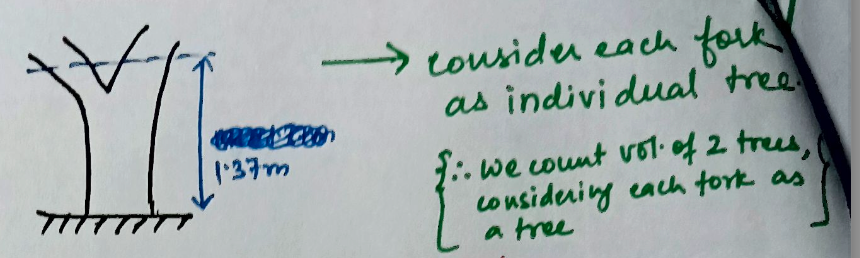 → consider each fork
as individual tree.
1.37m
{∴ we count vol. of 2 trees,
considering each fork as
a tree}